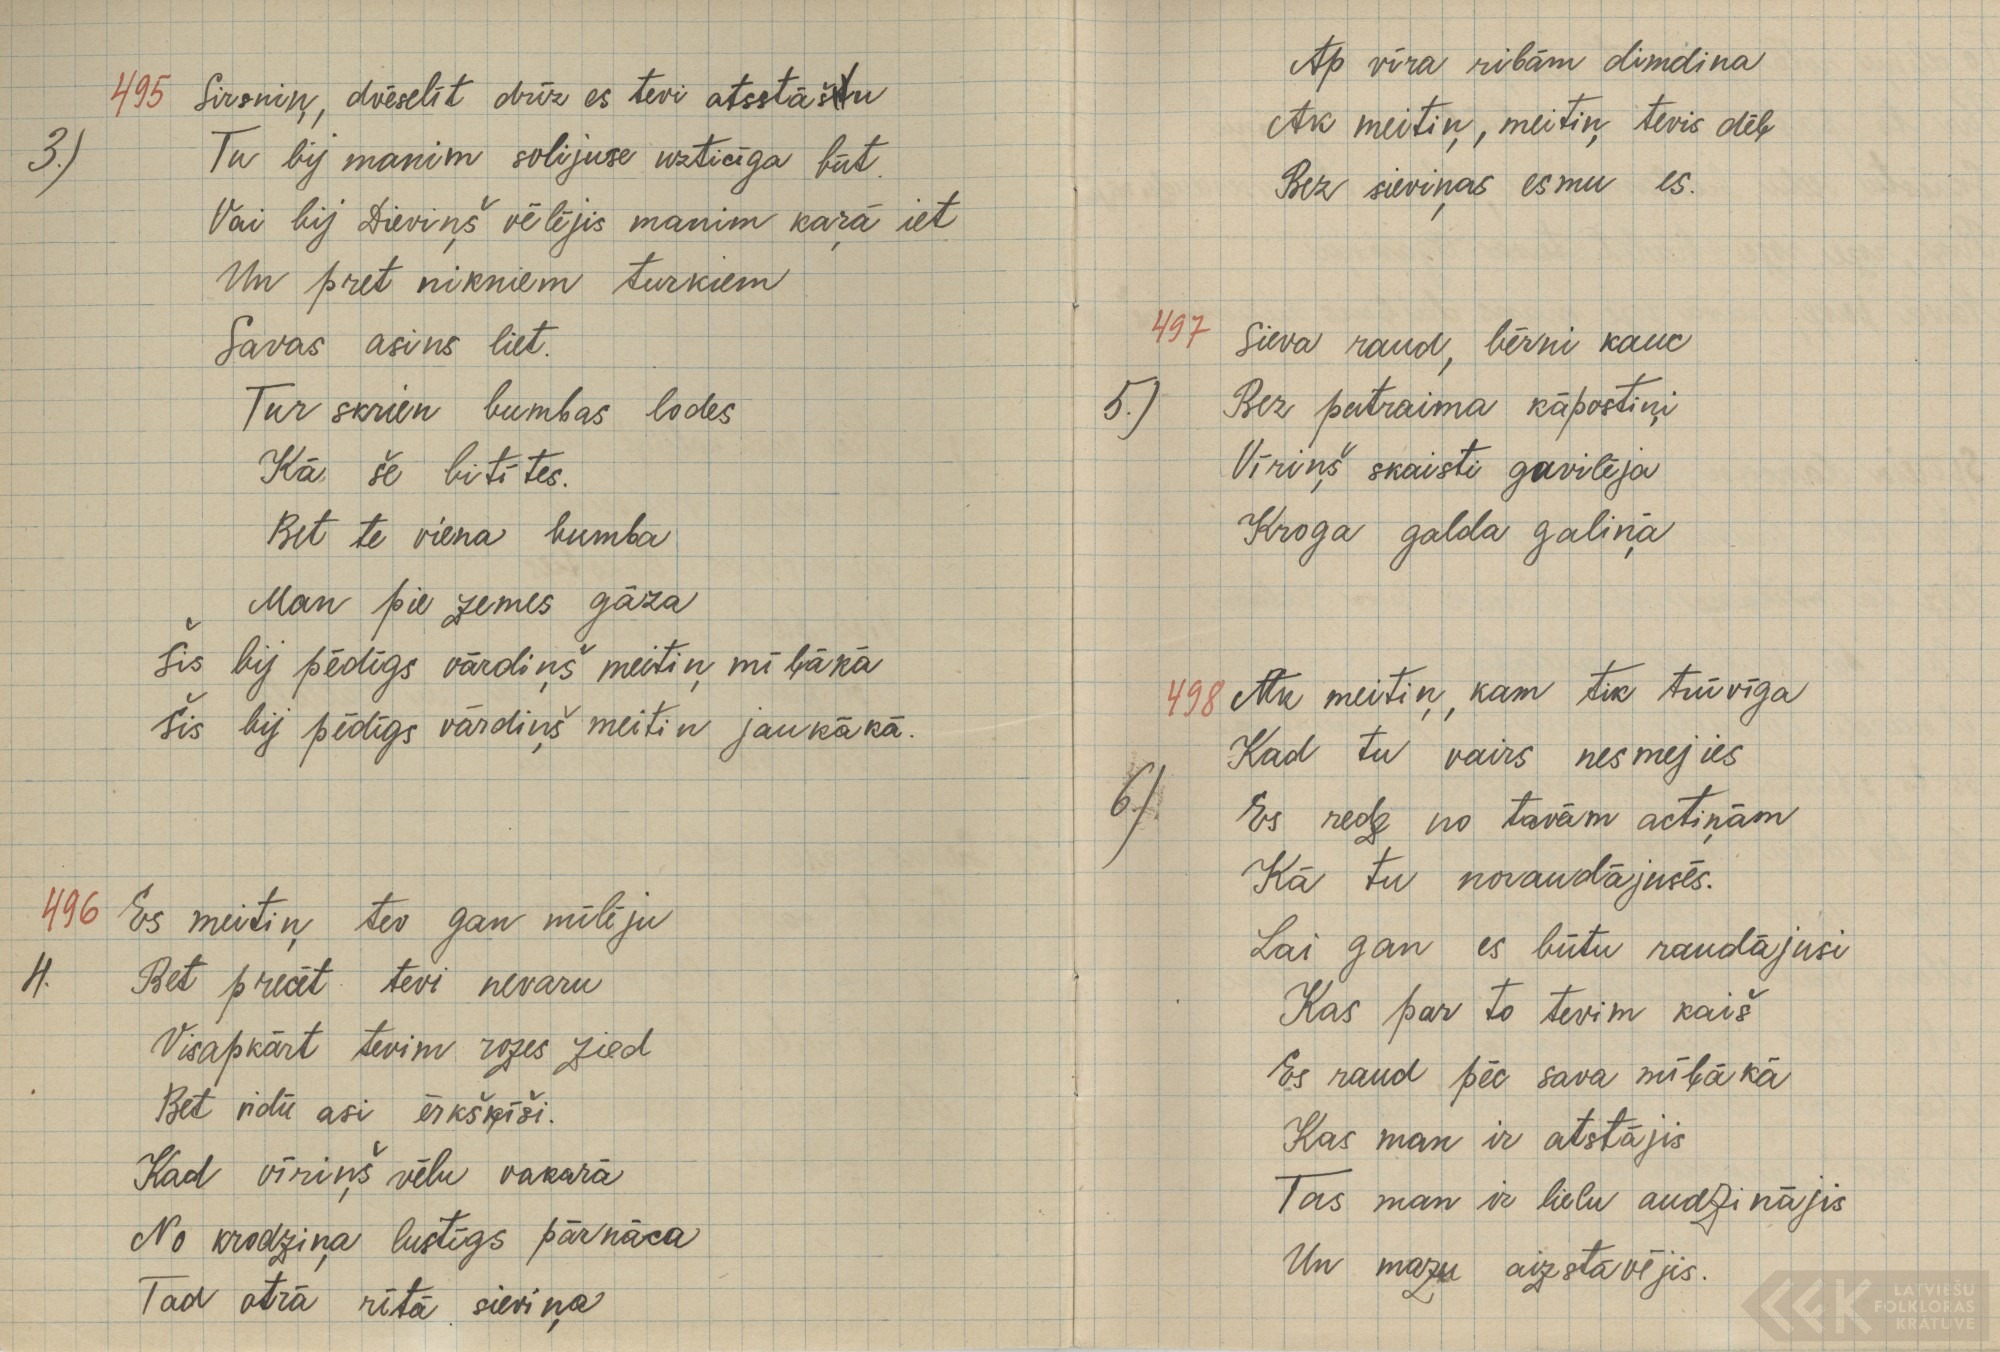 495 Sirsniņ, dvēselīt drīz es tevi atsstāštu
3.) Tu bij manim solijuse uzticīga būt.
Vai bij Dieviņš vēlējis manim kaŗā iet
Un pret nikniem turkiem
Savas asins liet.
Tur skrien bumbas lodes
Kā še bitītes.
Bet te viena bumba
Man pie zemes gāza
Šis bij pēdīgs vārdiņš meitiņ mīļākā
Šis bij pēdīgs vārdiņš meitin jaukākā.
496 Es meitiņ tev gan mīlēju
4. Bet precēt tevi nevaru
Visapkārt tevim rozes zied
Bet vidū asi ērkšķīši.
Kad vīriņš vēlu vakarā
No krodziņa lustīgs pārnāca
Tad otrā rītā sieviņa
Ap vīra ribām dimdina
Ak meitiņ, meitiņ tevis dēļ
Bez sieviņas esmu es.
497 Sieva raud, bērni kauc
5.) Bez putraima kāpostiņi
Vīriņš skaisti gavilēja
Kroga galda galiņā
498 Ak meitiņ, kam tik tuvīga
Kad tu vairs nesmejies
6.) Es redz no tavām actiņām
Kā tu noraudājusēs.
Lai gan es būtu raudājusi
Kas par to tevim kaiš
Es raud pēc sava mīļākā
Kas man ir atstājis
Tas man ir lielu audzinājis
Un mazu aizstāvējis.
LATVIEŠU
FOLKLORAS
KRĀTUVE